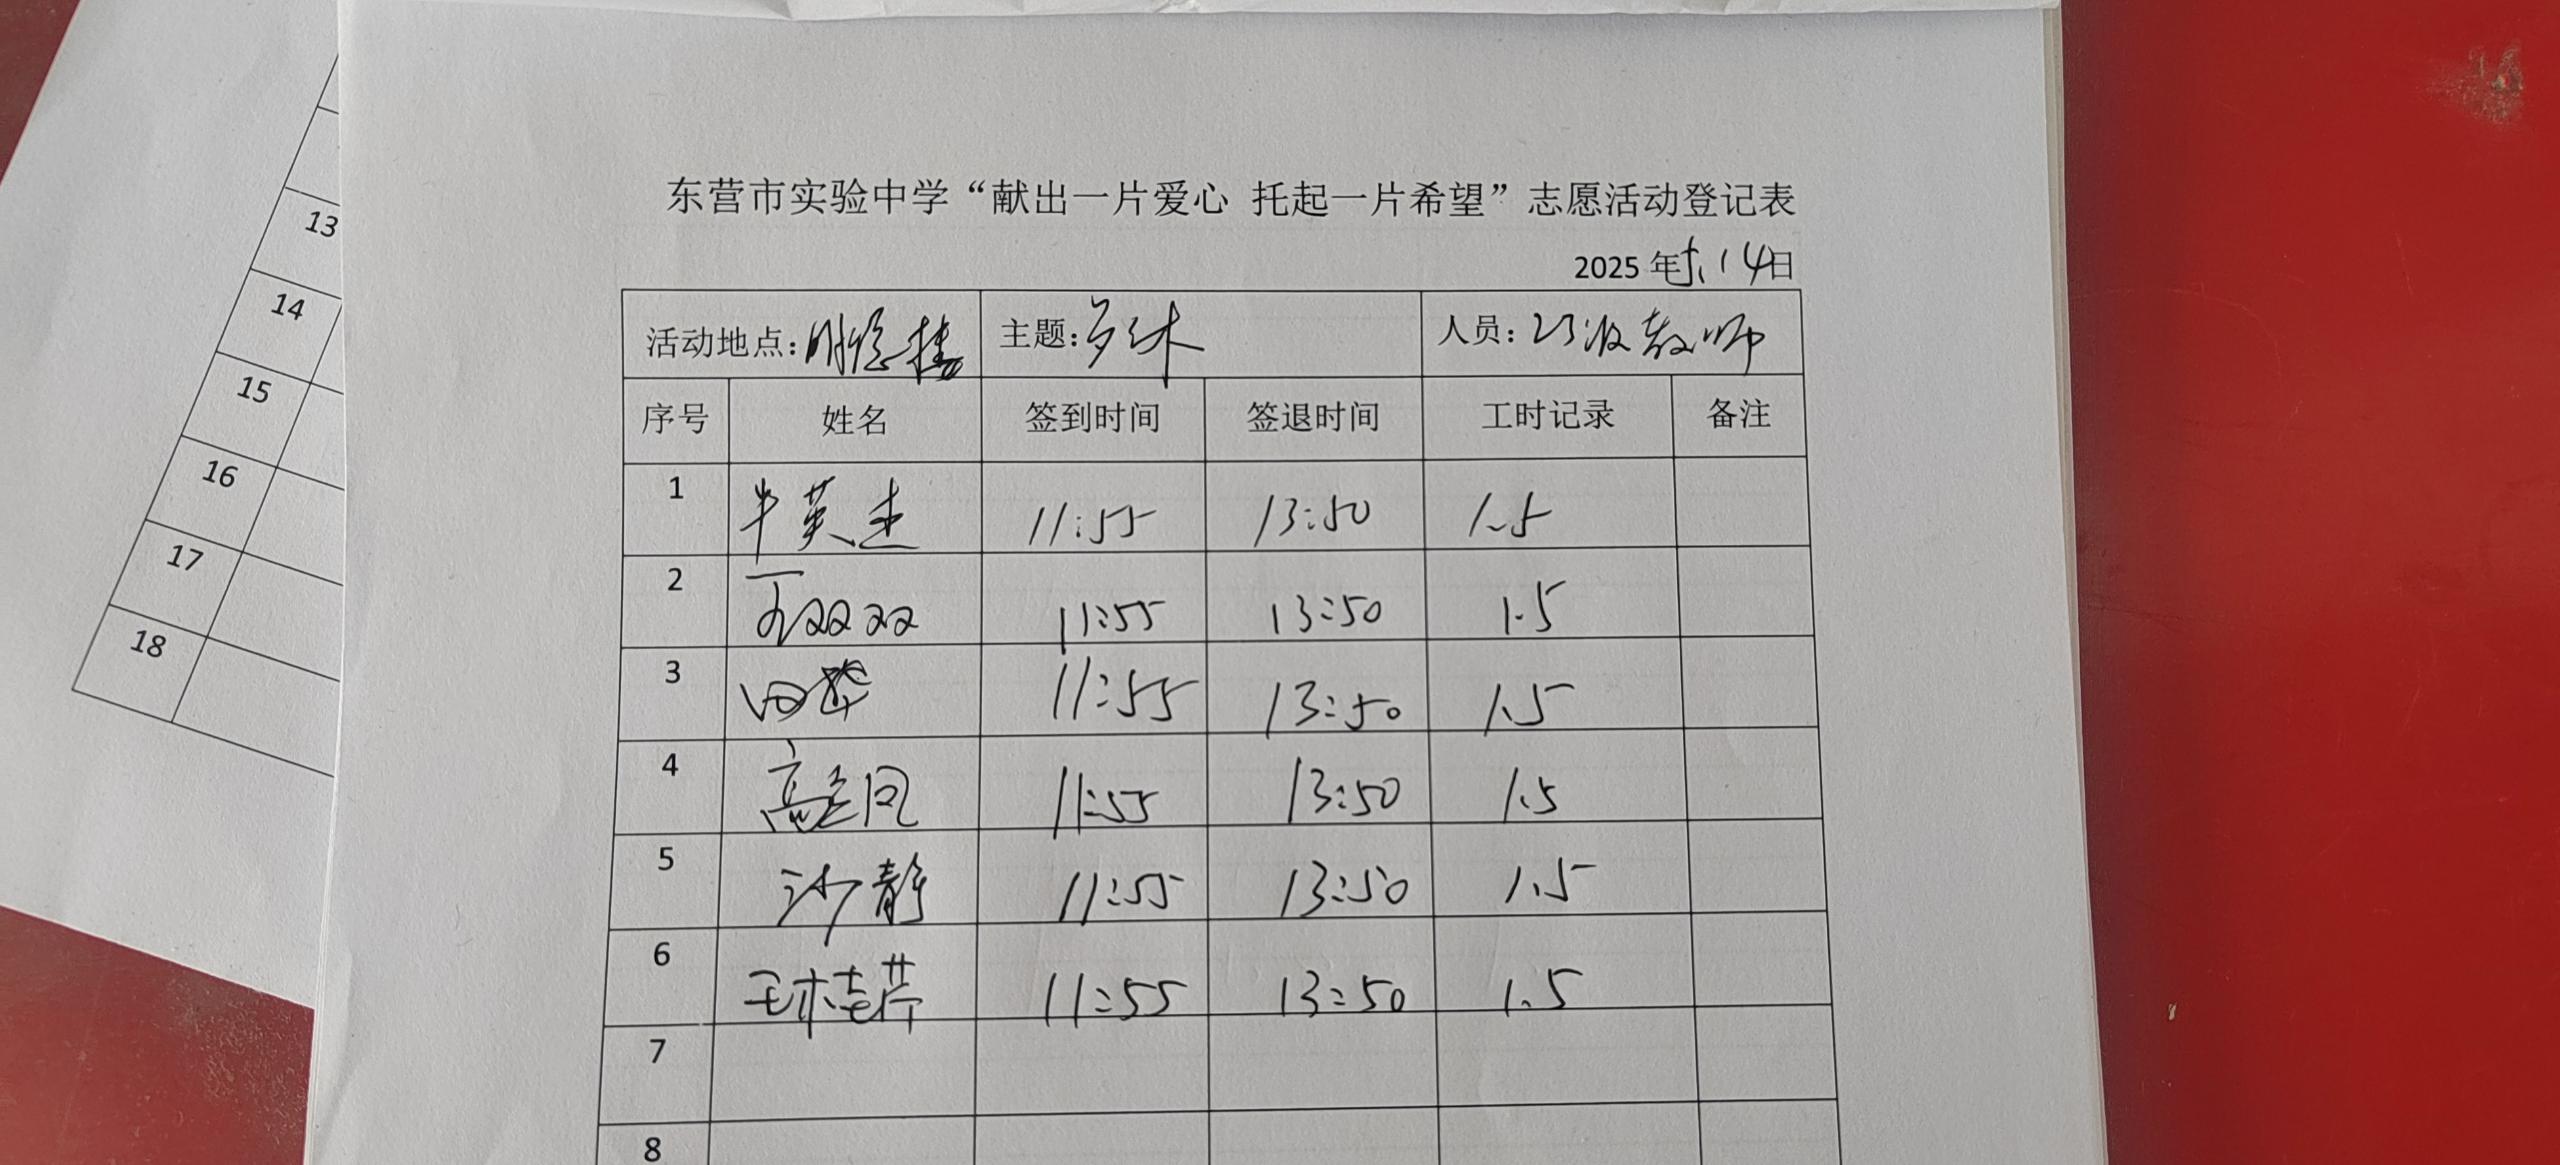 东营市实验中学“献出一片爱心 托起一片希望”志愿活动登记表
2025 年5.14日
活动地点: 主题: 人员: 教师
序号 姓名 签到时间 签退时间 工时记录 备注
1 11:55 13:50 1.5
2 11:55 13:50 1.5
3 田 11:55 13:50 1.5
4 高 11:55 13:50 1.5
5 沙静 11:55 13:50 1.5
6 王 11:55 13:50 1.5
7
8
13
14
15
16
17
18